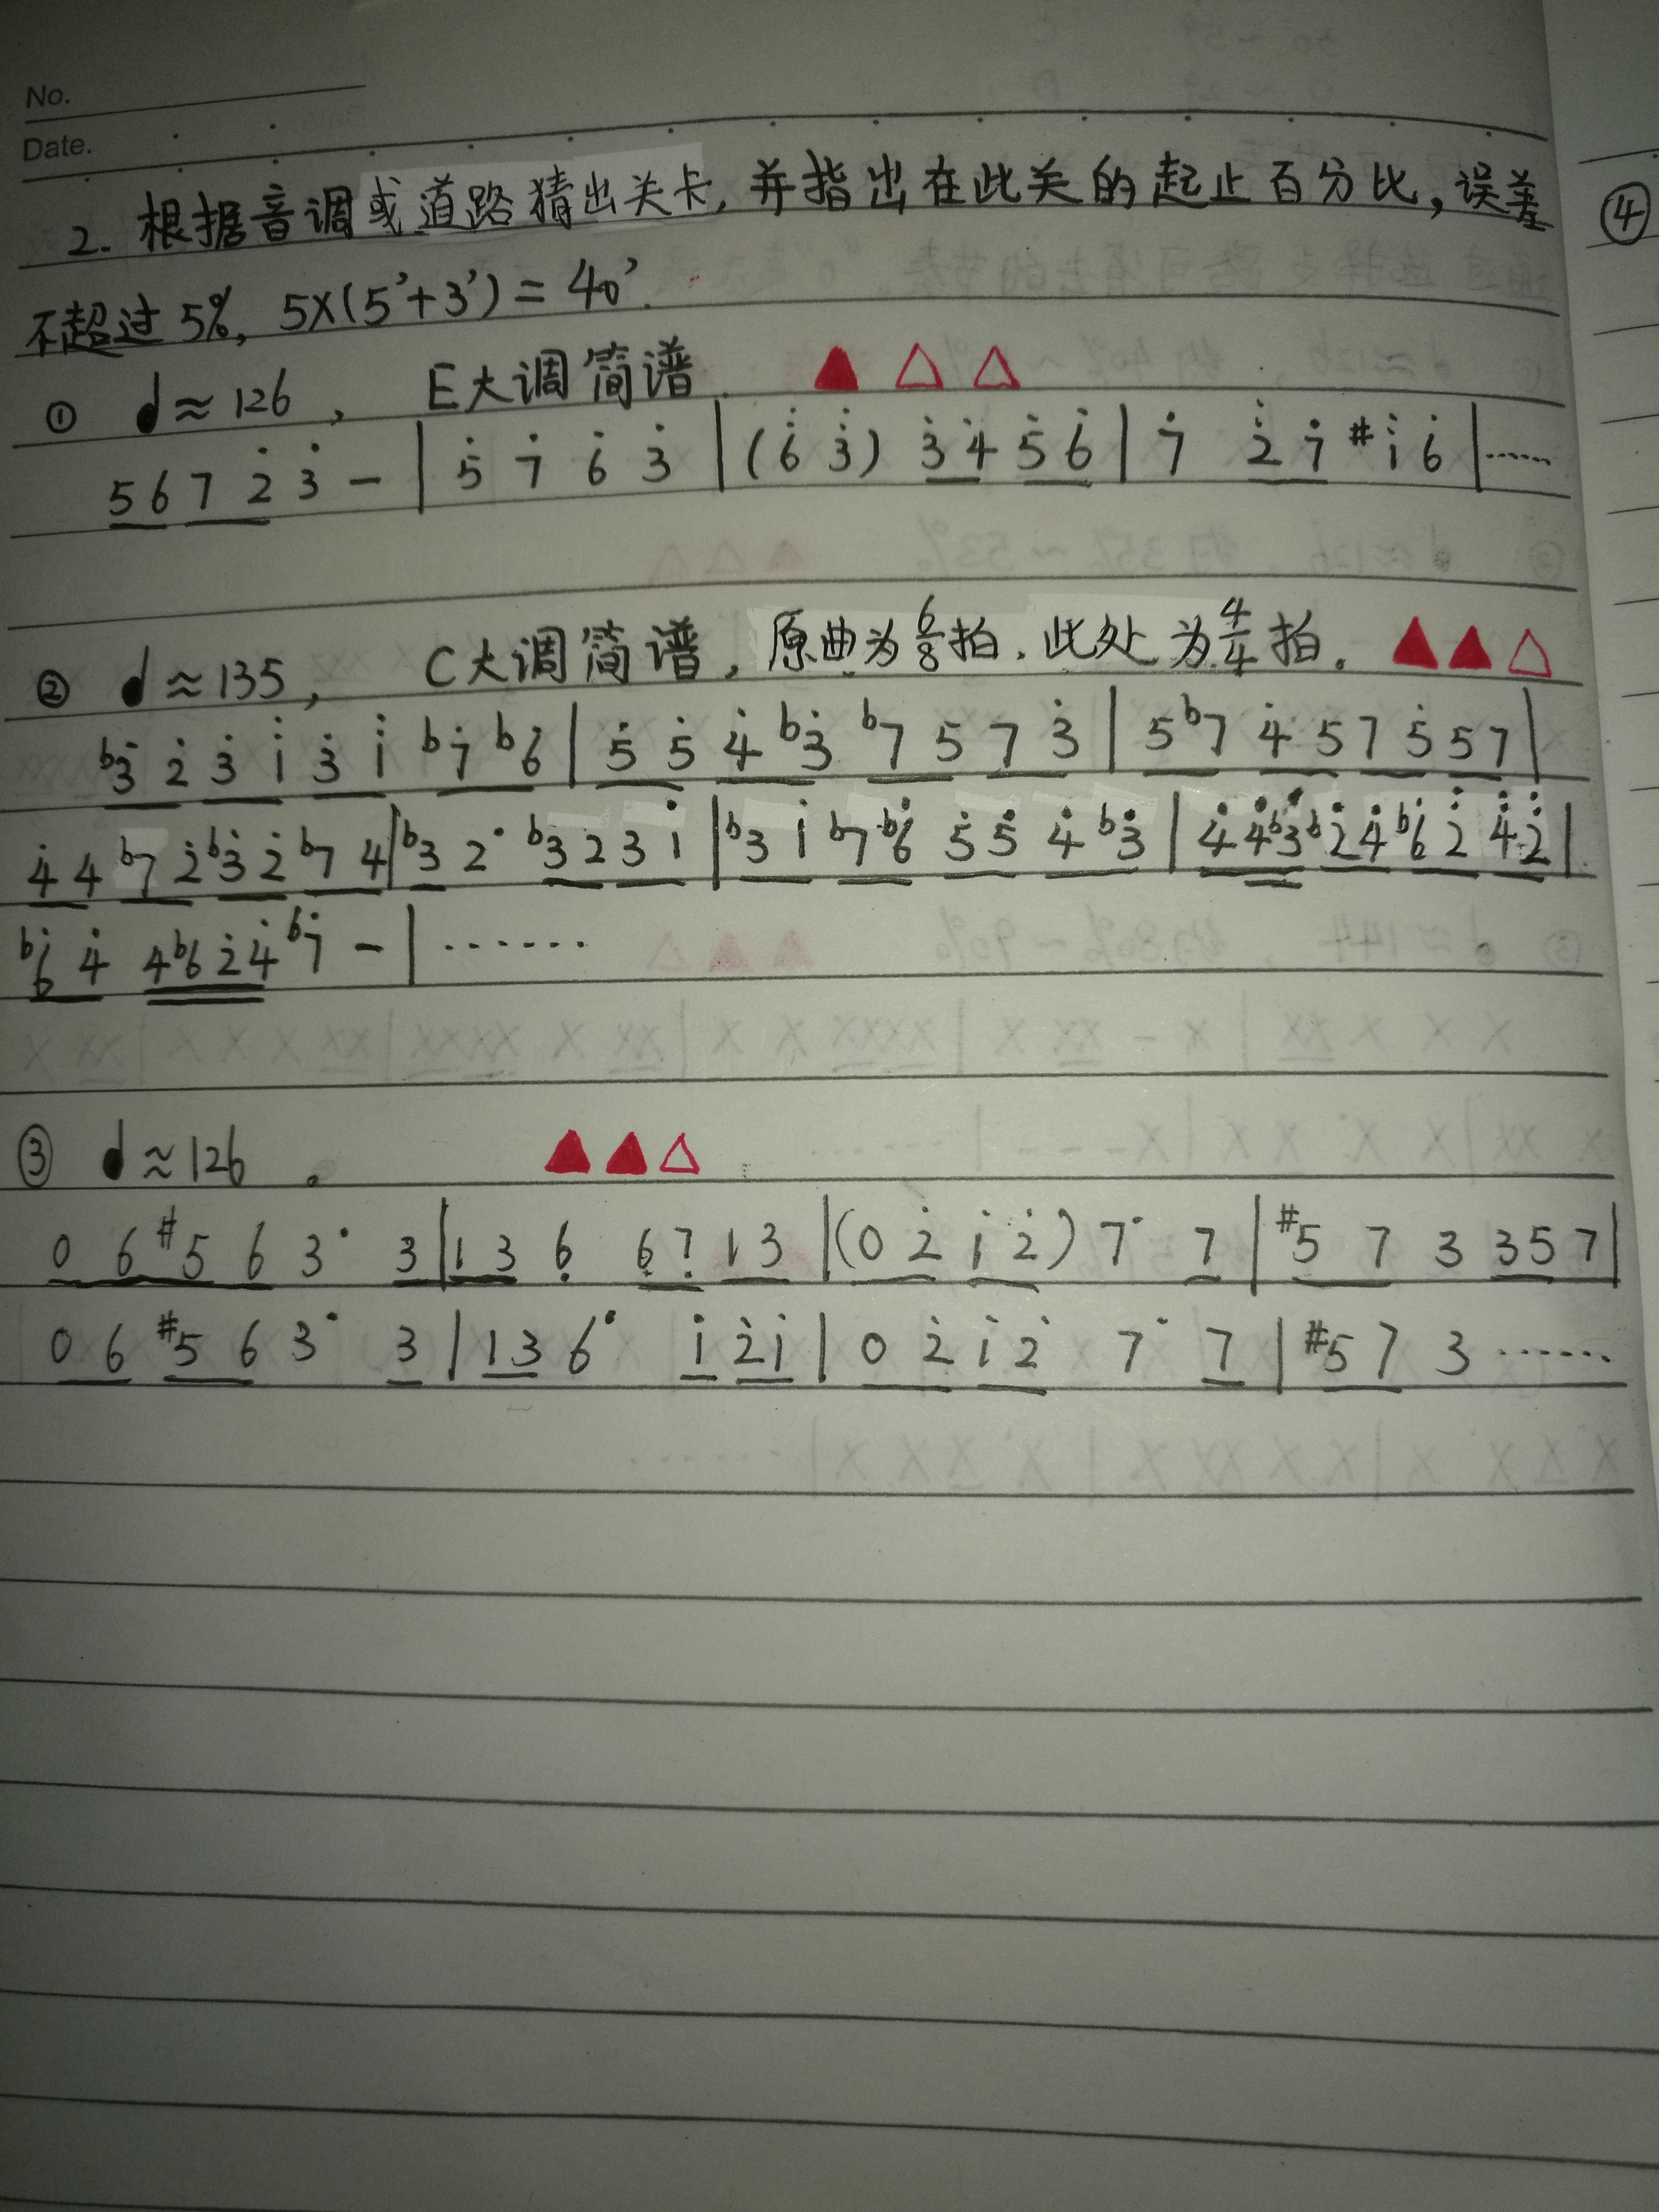 No.
Date.
2. 根据音调或道路猜出关卡, 并指出在此关的起止百分比, 误差
不超过 5%, 5×(5'+3') = 40'.
① ♩≈126, E大调简谱. ▲ △ △
5 6 7 2̇ 3̇ - | 5̇ 7̇ 6̇ 3̇ | (6̇ 3̇) 3̇ 4̇ 5̇ 6̇ | 7̇ 2̈ 7̇ #1̈ 6̇ | ……
② ♩≈135, C大调简谱, 原曲为6/8拍, 此处为4/4拍. ▲ ▲ △
b3̇ 2̇ 3̇ 1̇ 3̇ 1̇ b7̇ b6̇ | 5̇ 5̇ 4̇ b3̇ b7 5 7 3̇ | 5 b7 4̇ 5 7 5̇ 5 7 |
4̇ 4 b7 2̇ b3̇ 2̇ b7 4 | b3 2· b3 2 3 1̇ | b3 1̇ b7 b6̇ 5̇ 5̇ 4̇ b3̇ | 4̇ 4̇ b3̇ b2̇ 4̇ b6̇ 2̈ 4̈ 2̈ |
b6̇ 4̇ 4 b6 2̇ 4̇ b7̇ - | ……
③ ♩≈126. ▲ ▲ △
0 6 #5 6 3· 3 | 1 3 6̣ 6̣ 7̣ 1 3 | (0 2̇ 1̇ 2̇) 7· 7 | #5 7 3 3 5 7 |
0 6 #5 6 3· 3 | 1 3 6· 1̇ 2̇ 1̇ | 0 2̇ 1̇ 2̇ 7· 7 | #5 7 3 ……
④